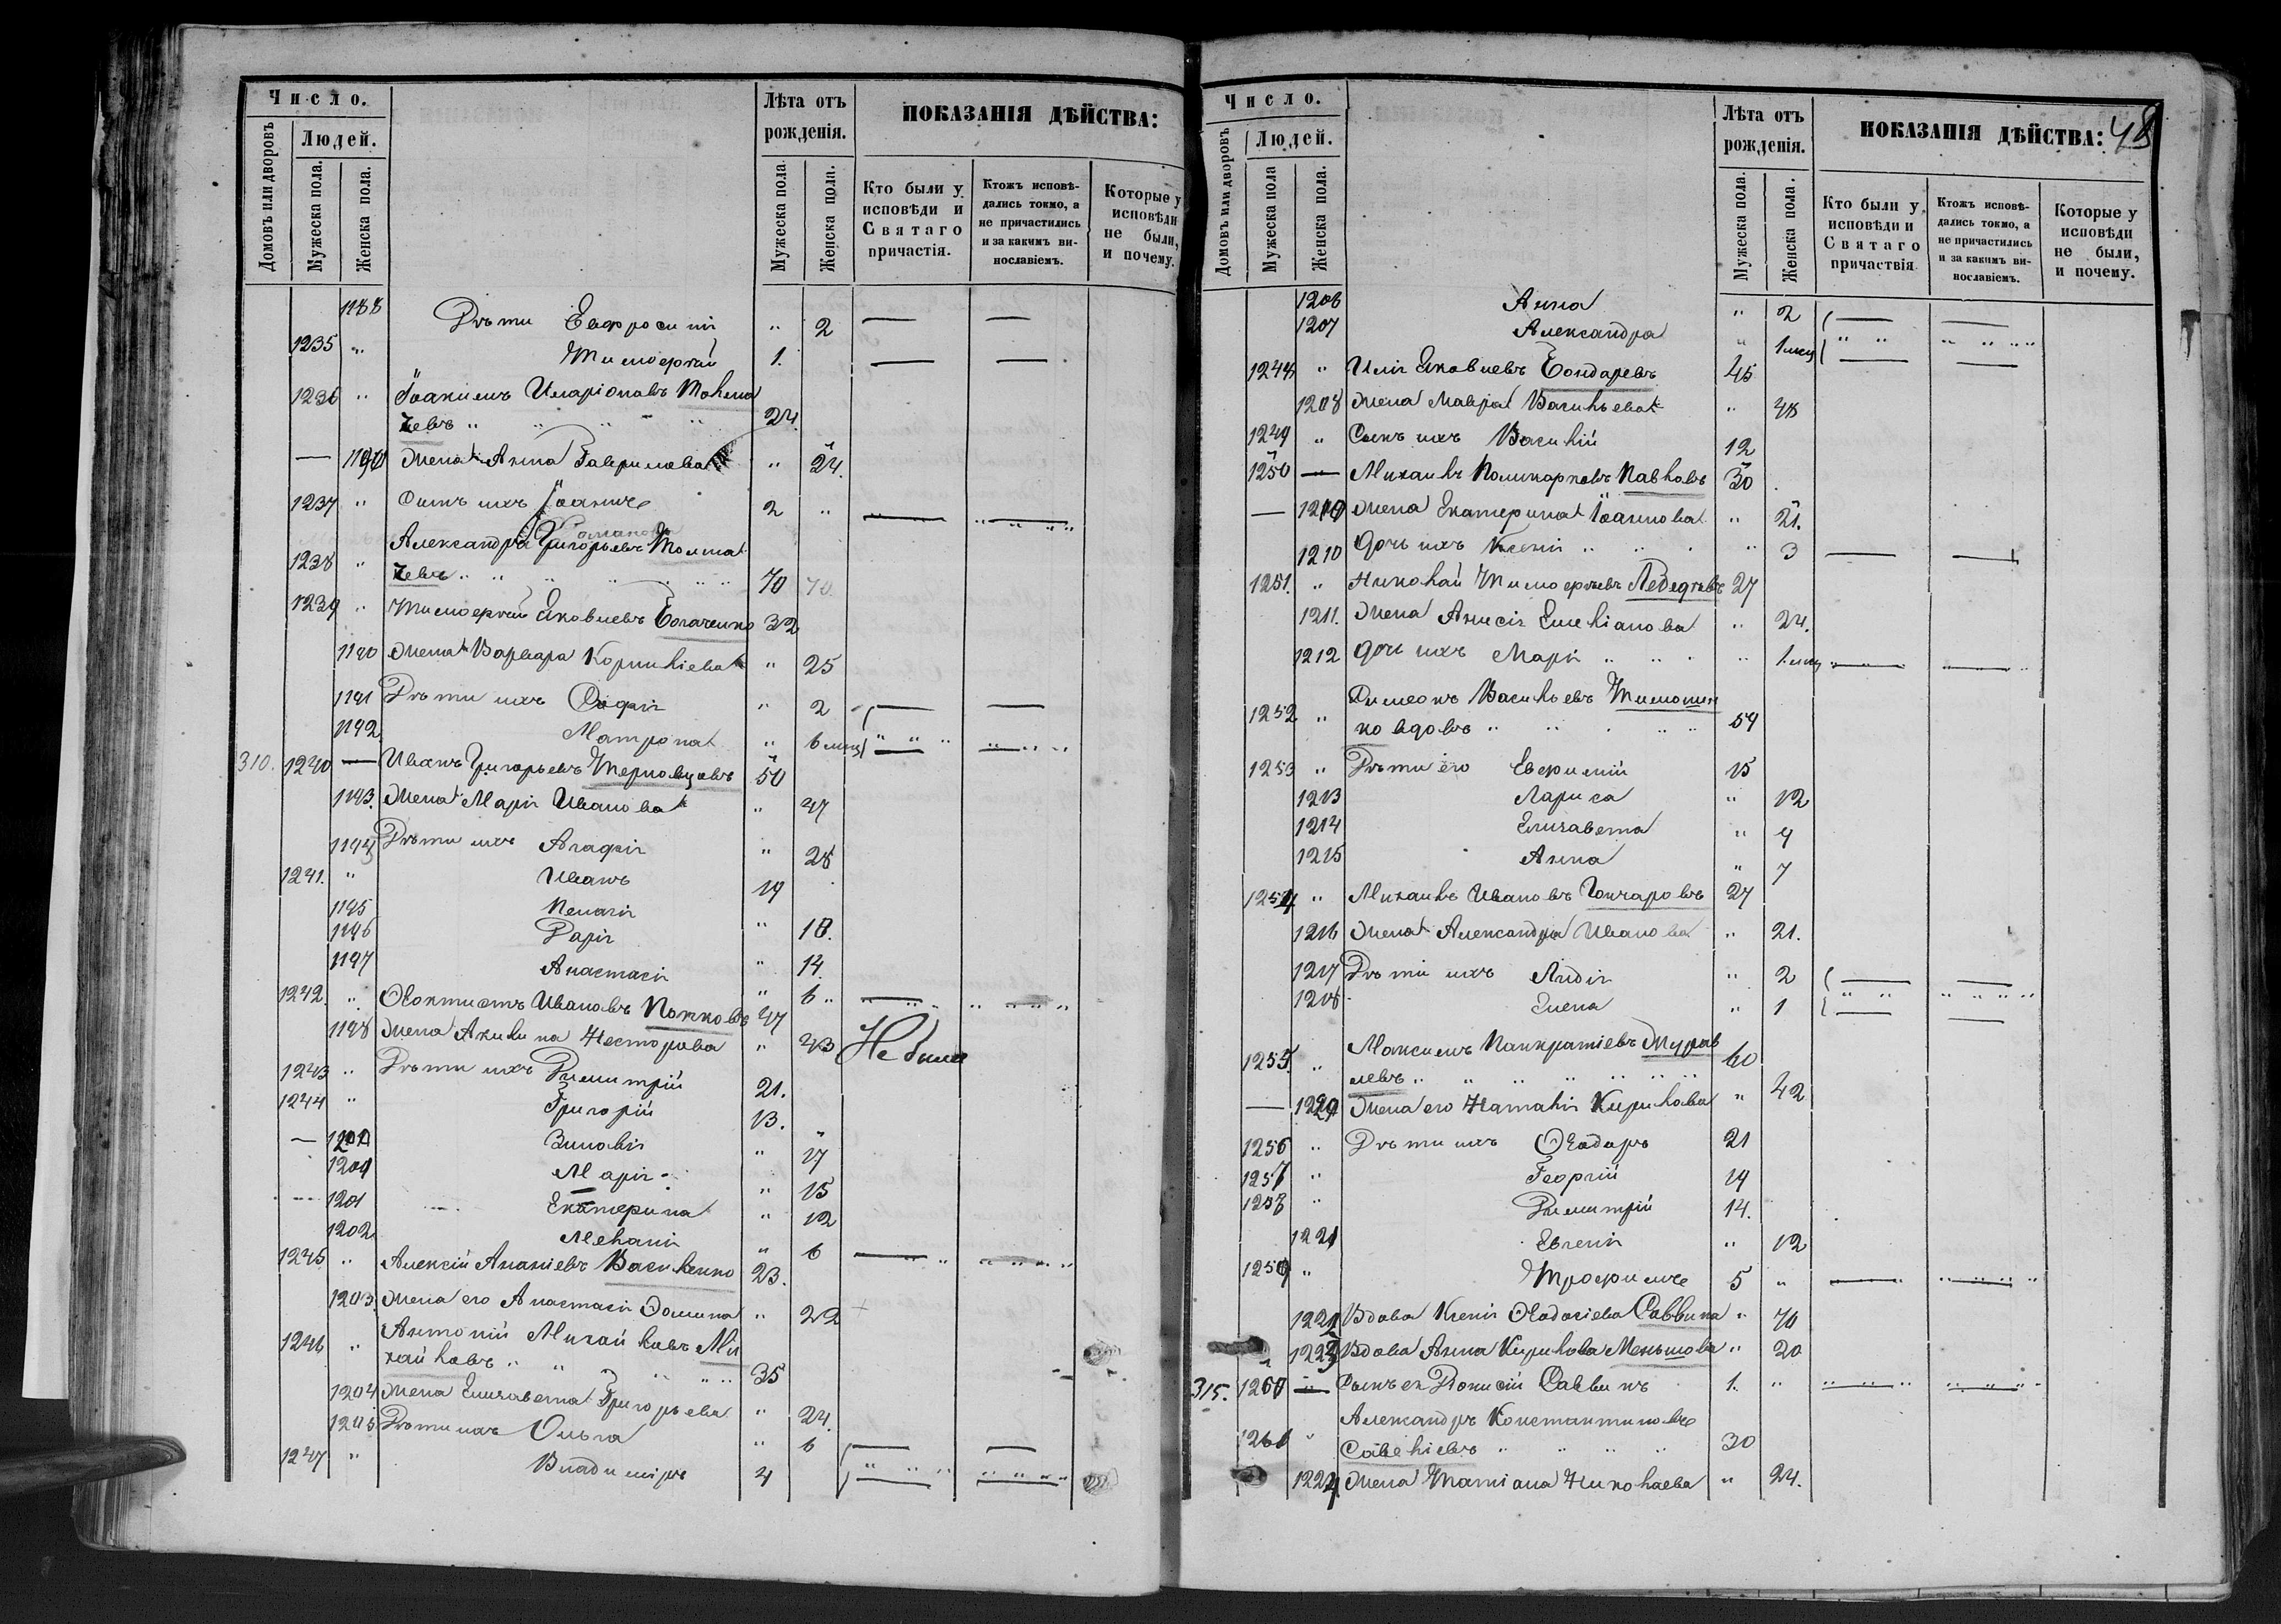 Число.
Домовъ или дворовъ
Людей.
Мужеска пола.
Женска пола.
Лѣта отъ рожденія.
Мужеска пола.
Женска пола.
ПОКАЗАНІЯ ДѢЙСТВА:
Кто были у исповѣди и Святаго причастія.
Ктожъ исповѣдались токмо, а не причастились и за какимъ винославіемъ.
Которые у исповѣди не были, и почему.
1188 Дѣти Евфросинія " 2
1235 " Тимофей 1.
1236 " Іоакимъ Иларіоновъ Толма
чевъ " " " " 24.
— 1190 Жена Анна Гаврилова " 24.
1237 " Сынъ ихъ Іоаннъ 2 "
Романовъ
Александръ Григорьевъ Толма
1238 " чевъ " " " " " 70 70
1239 " Тимофей Яковлевъ Богаченко 32
1190 Жена Варвара Корнильева " 25
1191 Дѣти ихъ Софія " 2
1192 Матрона " 6 мец
310. 1240 — Иванъ Григорьевъ Терновцовъ 50
1193. Жена Марія Иванова " 47
1194 Дѣти ихъ Агафія " 28
1241. " Иванъ 19
1195 Пелагія " 18.
1196 Дарія " 14.
1197 Анастасія " 6 "
1242. " Ѳеоктистъ Ивановъ Попковъ 47
1198 Жена Акилина Несторова " 43 Не были
1243 " Дѣти ихъ Димитрій 21.
1244 " Григорій 13.
— 1200 Зиновія " 17
1201 Марія " 15
1201 Екатерина " 12
1202 Меланія " 6
1245 " Алексій Ананіевъ Василенко 23.
1203. Жена его Анастасія Домина " 22
1246 " Антоній Михайловъ Ми
хайловъ " " " " " 35
1204 Жена Елизавета Григорьева " 24.
1205 Дѣти ихъ Ольга " 6
1247 " Владиміръ 4
48
Число.
Домовъ или дворовъ
Людей.
Мужеска пола
Женска пола.
Лѣта отъ рожденія.
Мужеска пола.
Женска пола.
ПОКАЗАНІЯ ДѢЙСТВА:
Кто были у исповѣди и Святаго причастія
Ктожъ исповѣдались токмо, а не причастились и за какимъ винославіемъ.
Которые у исповѣди не были, и почему.
1206 Анна " 2
1207 Александра " 1 мец
1248 " Илія Яковлевъ Бондаревъ 45
1208 Жена Мавра Васильева " 48
1249 " Сынъ ихъ Василій 12
1250 — Михаилъ Поликарповъ Павловъ 30
— 1210 Жена Екатерина Іоаннова " 21.
1210 Дочь ихъ Ксенія " " " 3
1251. " Николай Тимофеевъ Лебедевъ 27
1211. Жена Анисія Емеліанова " 24.
1212 Дочь ихъ Марія " " " 1 мец
Симеонъ Васильевъ Тимошен
1252 " ко вдовъ " " " " 54
1253 " Дѣти его Евфимій 15
1213 Лариса " 12
1214 Елизавета " 9
1215 Анна " 7
1254 " Михаилъ Ивановъ Гончаровъ 27
1216 Жена Александра Иванова " 21.
1217 Дѣти ихъ Лидія " 2
1218 Елена " 1
Максимъ Панкратіевъ Журав
1255. " левъ " " " " " 60
— 1220 Жена его Наталія Кирилова " 42
1256 " Дѣти ихъ Ѳеодоръ 21
1257 " Георгій 19
1258 " Димитрій 14.
1221 Евгенія " 12
1259 " Трофимъ 5 "
1222 Вдова Ксенія Ѳеодосіева Саввина " 70
1223 Вдова Анна Кирилова Меньшова " 20
315. 1260 — Сынъ ея Діонисій Саввинъ 1. "
Александръ Константиновъ
1261 " Савеліевъ " " " " 30
1224 Жена Татіана Николаева " 24.